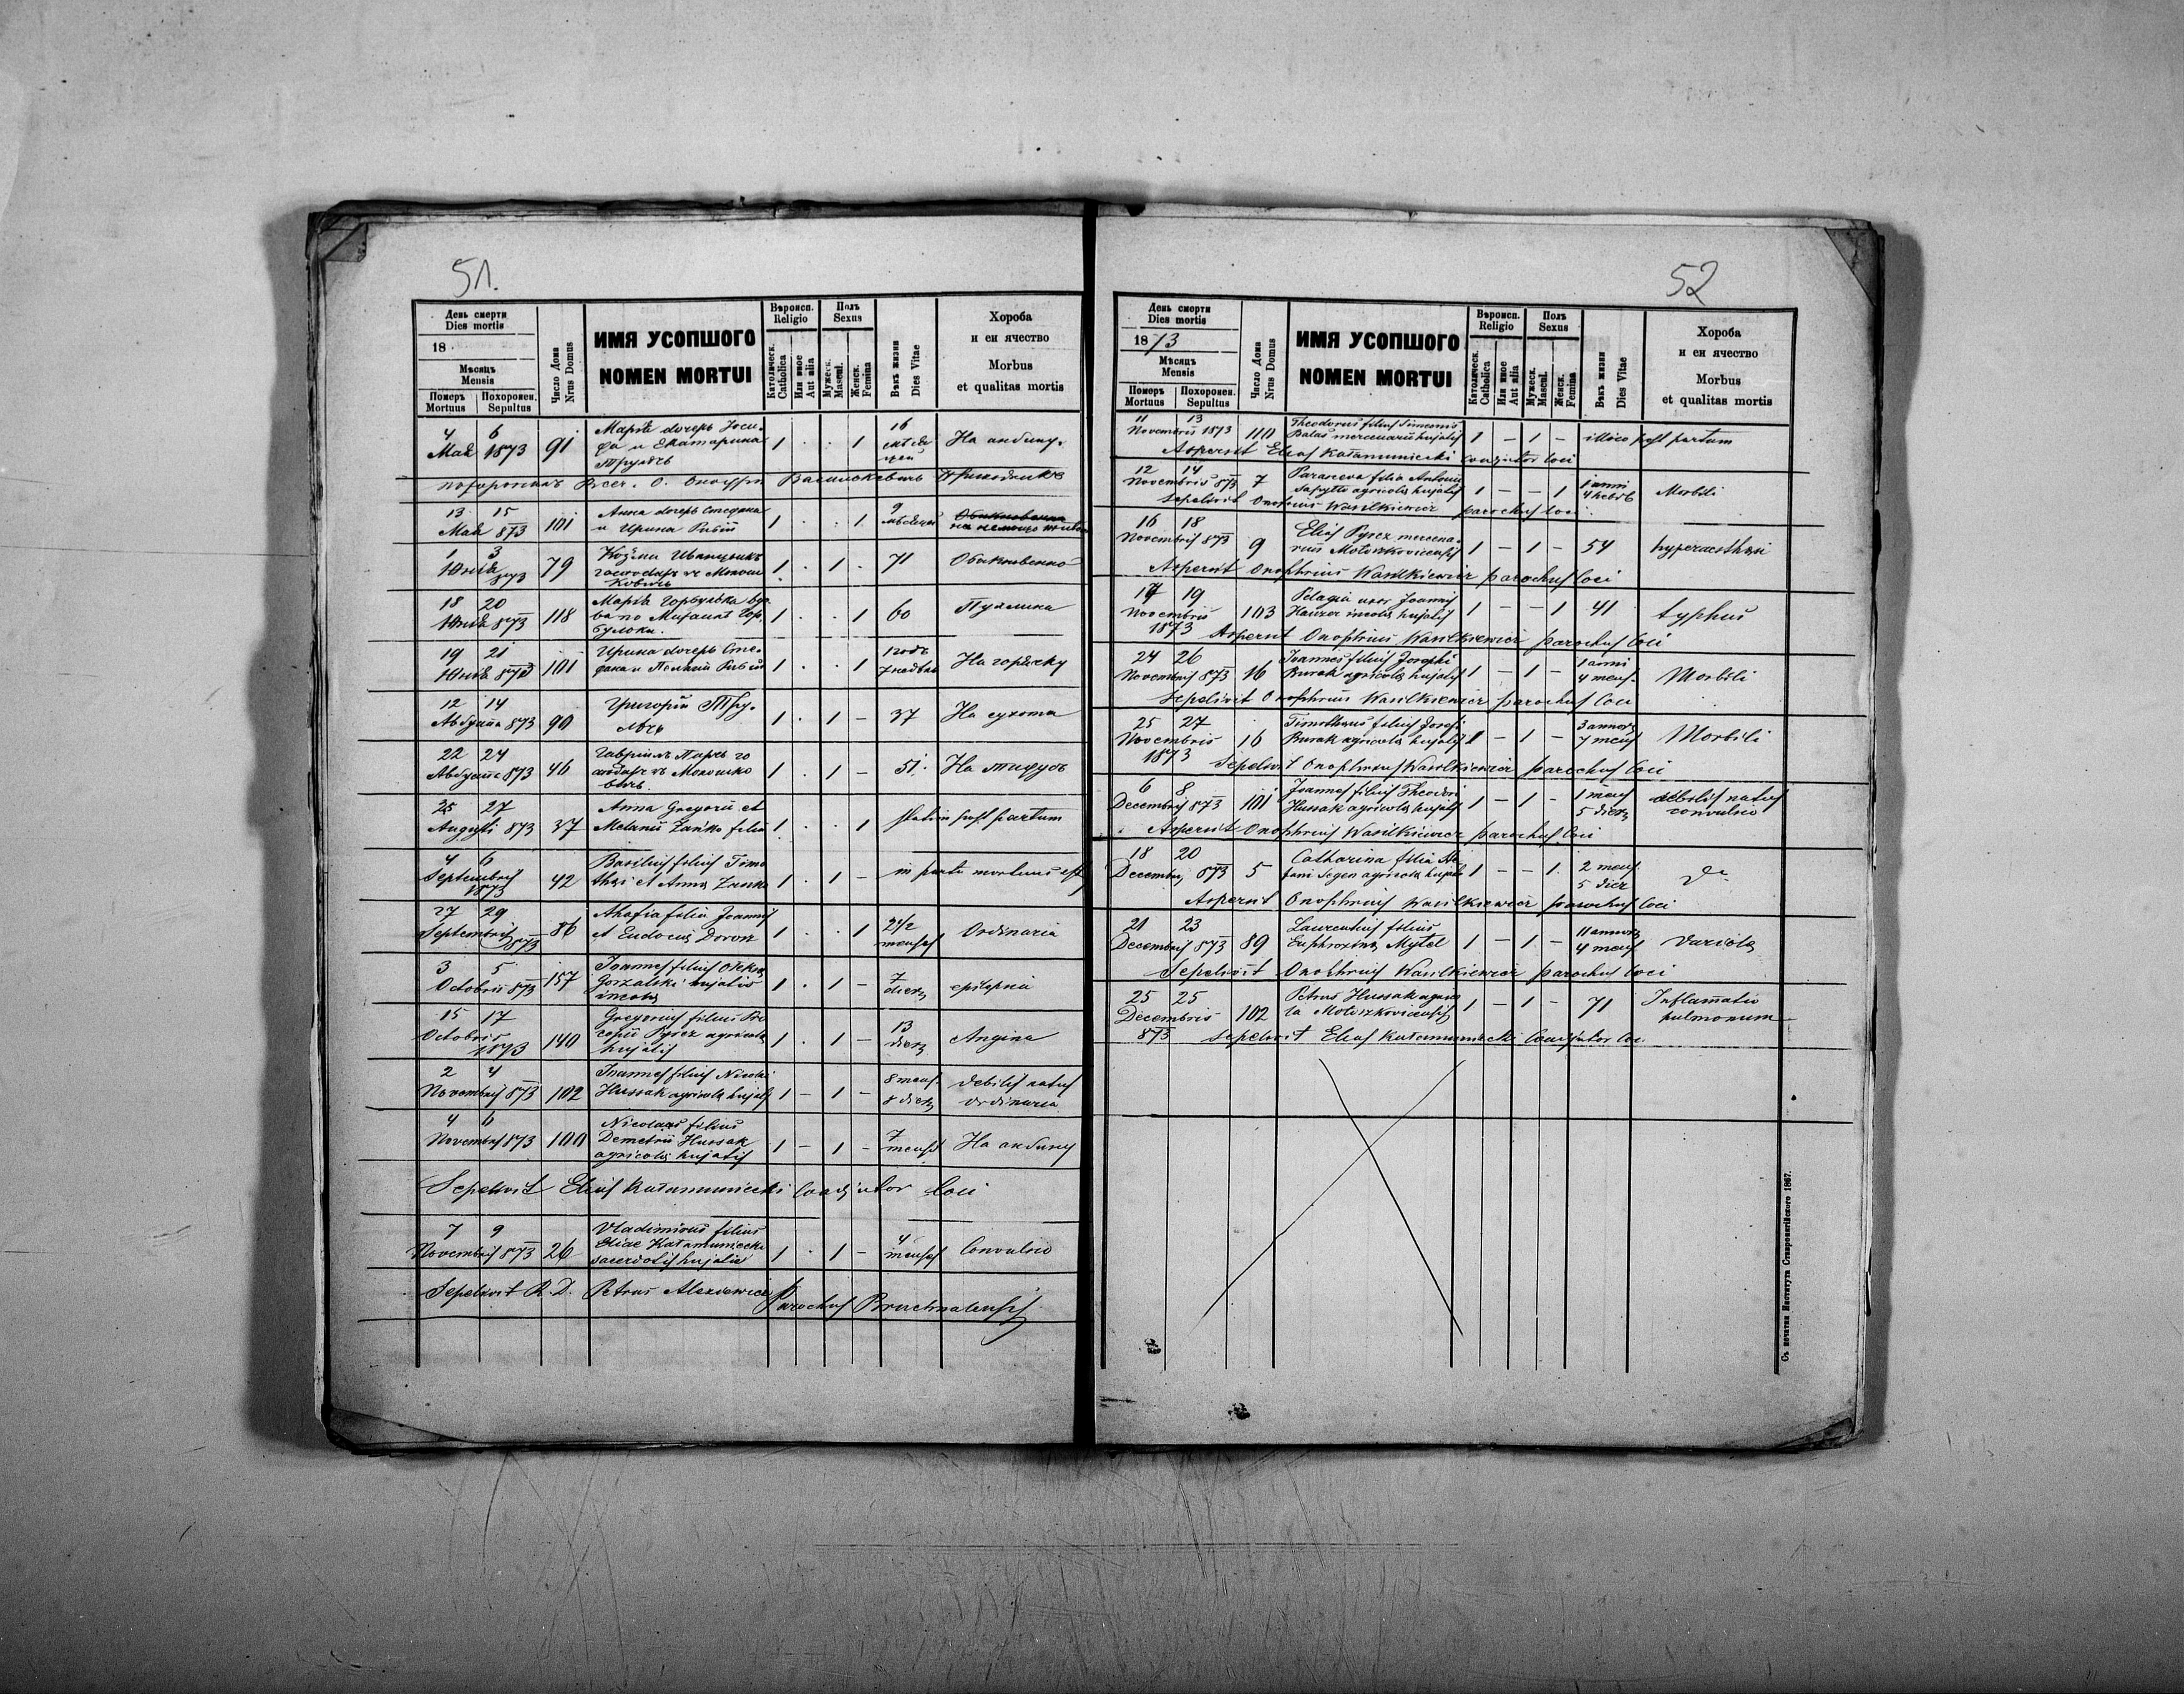 51.
День смерти
Dies mortis
18
Мѣсяць
Mensis
Померъ Mortuus
Похоронен. Sepultus
Число Дома
Nrus Domus
ИМЯ УСОПШОГО
NOMEN MORTUI
Вѣроисп.
Religio
Католическ.
Catholica
Или иное
Aut alia
Полъ
Sexus
Мужеск.
Mascul.
Женск.
Femina
Вѣкъ жизни
Dies Vitae
Хороба
и еи ячество
Morbus
et qualitas mortis
4 6
Мая 1873 91 Марія дочерь Іоси-
фа и Екатарина 1 . . 1 16
13 15
Мая 873 101 Анна дочерь Стефана
и Ирина 1 . . 1 9
1 3
873 79 1 . 1 . 71 Обыкновенно
18 20
873 118 Марія Горбулька вдо-
ва по Михаилѣ Гор-
бульки. 1 . . 1 60 Пухлина
19 21
873 101 Ирина дочерь Сте-
фана и 1 . . 1 1 годъ
12 14
Августа 873 90 Григорій 1 . 1 – 37 На сухота
22 24
Августа 873 46 Гавріилъ 1 . 1 – 51. На тифусъ
25 27
Augusti 873 37 Anna Gregorii et
Melanii Żańko filia 1 . . 1 statim post partum
4 6
Septembris
1873 42 Basilius filius Timo
thei et Anna Zanko 1 . 1 – in partu mortuus est
27 29
Septembris
873 86 Ahafia filia Joannis
et Eudocia 1 . . 1 2 1/2
menses Ordinaria
3 5
Octobris 873 157 Joannes filius
Gorzalski hujatis
incola 1 . 1 – 7
dies epilepsia
15 17
Octobris
1873 140 Gregorius filius
Pyrez agricola
hujatis 1 . 1 – 13
dies Angina
2 4
Novembris 873 102 Joannes filius Nicolai
Hussak agricola hujatis 1 – 1 – 8 mens.
8 dies debilis natus
ordinaria
4 6
Novembris 873 100 Nicolaus filius
Demetrii Hussak
agricola hujatis 1 – 1 – 7
menses
Sepelivit Elias Kałamuniecki Coadjutor loci
7 9
Novembris 873 26 Vladimirus filius
Eliae Kałamuniecki
sacerdotis hujatis 1 . 1 – 4
menses Convulsio
Sepelivit R. D. Petrus Alexiewicz Parochus Bruchnalensis
52
День смерти
Dies mortis
1873
Мѣсяць
Mensis
Померъ Mortuus
Похоронен. Sepultus
Число Дома
Nrus Domus
ИМЯ УСОПШОГО
NOMEN MORTUI
Вѣроисп.
Religio
Католическ.
Catholica
Или иное
Aut alia
Полъ
Sexus
Мужеск.
Mascul.
Женск.
Femina
Вѣкъ жизни
Dies Vitae
Хороба
и еи ячество
Morbus
et qualitas mortis
11 13
Novembris 1873 110 Theodorus filius Simeonis
Balas mercenarii hujatis 1 – 1 – illico post partum
Aspersit Elias Kałamuniecki Coadjutor loci
12 14
Novembris 873 7 Parasceva filia Antonii
Sapyta agricola hujatis 1 – – 1 1 anni Morbili
Sepelivit Onophrius Wasilkiewicz parochus loci
16 18
Novembris 873 9 Elias Pyrez mercena-
rius Mołoszkoviensis 1 – 1 – 54
Aspersit Onophrius Wasilkiewicz parochus loci
17 19
Novembris
1873 103 Pelagia uxor Joannis
incola hujatis 1 – – 1 41 typhus
Aspersit Onophrius Wasilkiewicz parochus loci
24 26
Novembris 873 16 Joannes filius Josephi
Burak agricola hujatis 1 – 1 – 1 anni
4 mens. Morbili
Sepelivit Onophrius Wasilkiewicz parochus loci
25 27
Novembris
1873 16 Timotheus filius Josefi
Burak agricola hujatis 1 – 1 – 3 annor
7 mens Morbili
Sepelivit Onophrius Wasilkiewicz parochus loci
6 8
Decembris 873 101 Joannes filius Theodori
Hussak agricola hujatis 1 – 1 – 1 mens
5 dies debilis natus
convulsio
Aspersit Onophrius Wasilkiewicz parochus loci
18 20
Decembris 873 5 Catharina filia Ste-
fani Segen agricola hujatis 1 – – 1. 2 mens.
5 dies do
Aspersit Onophrius Wasilkiewicz parochus loci
21 23
Decembris 873 89 Laurentius filius
Euphrozina Mytel 1 – 1 – 11 annor
4 mens Variola
Sepelivit Onophrius Wasilkiewicz parochus loci
25 25
Decembris
873 102 Petrus Hussak agrico
la Mołoszkoviensis 1 – 1 – 71 Inflamatio
pulmonum
Sepelivit Elias Kałamuniecki Coadjutor loci
Съ печатни Института Ставропигійского 1867.